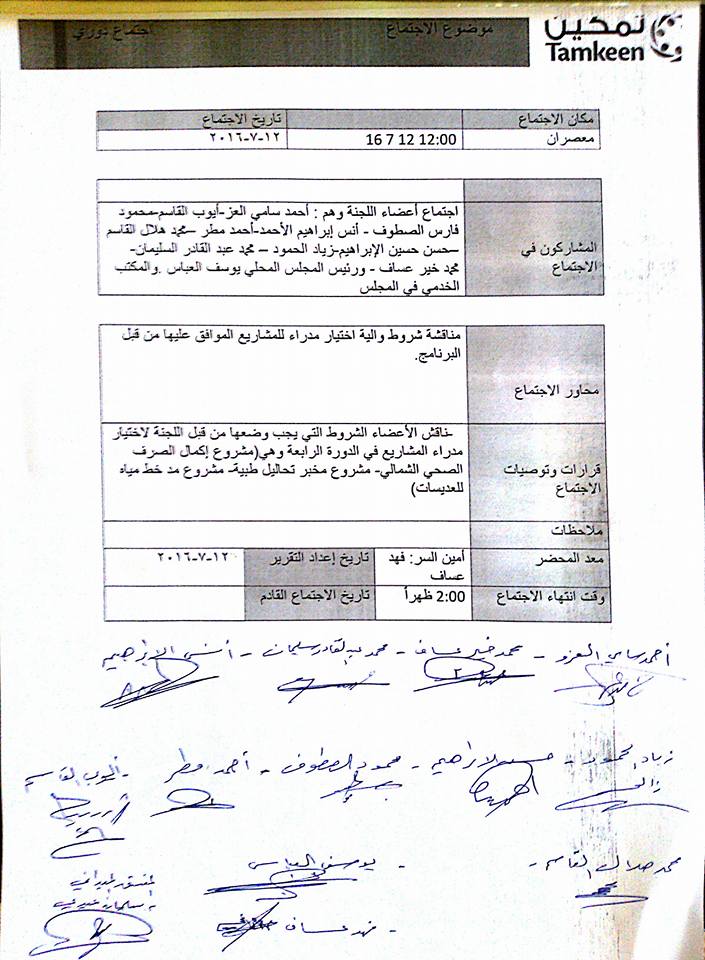 تمكين
Tamkeen
موضوع الاجتماع
اجتماع دوري
مكان الاجتماع
تاريخ الاجتماع
معصران
16 7 12 12:00
١٢-٧-٢٠١٦
المشاركون في الاجتماع
اجتماع أعضاء اللجنة وهم : أحمد سامي العز-أيوب القاسم-محمود
فارس الصطوف - أنس إبراهيم الأحمد-أحمد مطر –محمد هلال القاسم
–حسن حسين الإبراهيم-زياد الحمود – محمد عبد القادر السليمان-
محمد خير عساف - ورئيس المجلس المحلي يوسف العباس .والمكتب
الخدمي في المجلس
محاور الاجتماع
مناقشة شروط والية اختيار مدراء للمشاريع الموافق عليها من قبل
البرنامج.
قرارات وتوصيات الاجتماع
-ناقش الأعضاء الشروط التي يجب وضعها من قبل اللجنة لاختيار
مدراء المشاريع في الدورة الرابعة وهي(مشروع إكمال الصرف
الصحي الشمالي- مشروع مخبر تحاليل طبية- مشروع مد خط مياه
للعديسات)
ملاحظات
معد المحضر
أمين السر: فهد عساف
تاريخ إعداد التقرير
١٢-٧-٢٠١٦
وقت انتهاء الاجتماع
2:00 ظهراً
تاريخ الاجتماع القادم
أحمد سامي العزو - محمد خير عساف - محمد عبدالقادر سليمان - أنس الابراهيم
زياد الحمود - حسن الابراهيم - محمود الصطوف - أحمد مطر - أيوب القاسم
محمد هلال القاسم - يوسف العباس
- فهد عساف